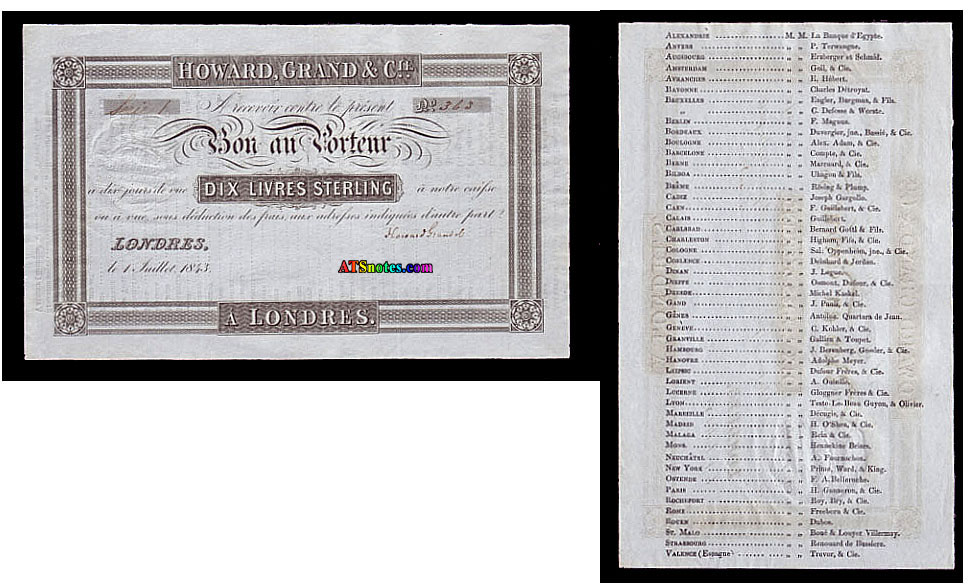 HOWARD, GRAND & Cie.
Série 1 A recevoir contre le présent No 363
Bon au Porteur
à dix jours de vue DIX LIVRES STERLING à notre caisse
ou à vue, sous déduction des frais, aux adresses indiquées d'autre part
LONDRES,
le 1 Juillet 1843.
ATSnotes.com
À LONDRES.
ALEXANDRIE M. M. La Banque d'Egypte.
ANVERS „ „ P. Terwangne.
AUGSBOURG „ „ Erzberger et Schmid.
AMSTERDAM „ „ Goll, & Cie.
AVRANCHES „ „ R. Hébert.
BAYONNE „ „ Charles Détroyat.
BRUXELLES „ „ Engler, Bargman, & Fils.
„ „ „ C. Defosse & Worste.
BERLIN „ „ F. Magnus.
BORDEAUX „ „ Duvergier, jne., Bassié, & Cie.
BOULOGNE „ „ Alex. Adam, & Cie.
BARCELONE „ „ Compte, & Cie.
BERNE „ „ Marcuard, & Cie.
BILBOA „ „ Uhagon & Fils.
BRÊME „ „ Rösing & Plump.
CADIZ „ „ Joseph Gargollo.
CAEN „ „ F. Guillebert, & Cie.
CALAIS „ „ Guillebert.
CARLSBAD „ „ Bernard Gottl & Fils.
CHARLESTON „ „ Higham, Fife, & Cie.
COLOGNE „ „ Sal. Oppenheim, jne., & Cie.
COBLENCE „ „ Deinhard & Jordan.
DINAN „ „ J. Legue.
DIEPPE „ „ Osmont, Dufour, & Cie.
DRESDE „ „ Michel Kaskel.
GAND „ „ J. Panii, & Cie.
GÊNES „ „ Antoine Quartara de Jean.
GENÈVE „ „ C. Kohler, & Cie.
GRANVILLE „ „ Gallien & Toupet.
HAMBOURG „ „ J. Berenberg, Gossler, & Cie.
HANOVRE „ „ Adolphe Meyer.
LEIPSIC „ „ Dufour Frères, & Cie.
LORIENT „ „ A. Ouizille.
LUCERNE „ „ Gloggner Frères & Cie.
LYON „ „ Teste-Le-Beau Guyon, & Olivier.
MARSEILLE „ „ Décugis, & Cie.
MADRID „ „ H. O'Shea, & Cie.
MALAGA „ „ Rein & Cie.
MONS „ „ Hennekine Briart.
NEUCHÂTEL „ „ A. Fournachon.
NEW YORK „ „ Prime, Ward, & King.
OSTENDE „ „ F. A. Belleroche.
PARIS „ „ H. Ganneron, & Cie.
ROCHEFORT „ „ Roy, Bry, & Cie.
ROME „ „ Freeborn & Cie.
ROUEN „ „ Dubos.
ST. MALO „ „ Boué & Louyer Villermay.
STRASBOURG „ „ Renouard de Bussière.
VALENCE (Espagne) „ „ Trevor, & Cie.